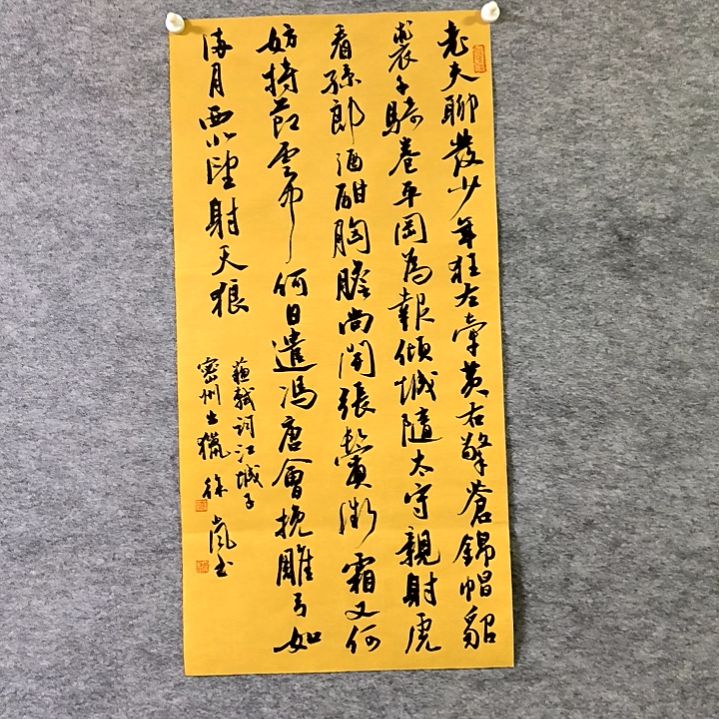 老夫聊發少年狂左牽黄右擎蒼錦帽貂
裘千騎卷平岡為報傾城隨太守親射虎
看孫郎酒酣胸膽尚開張鬢微霜又何
妨持節雲中何日遣馮唐會挽雕弓如
满月西北望射天狼
蘇軾詞江城子
密州出獵 徐嵐书